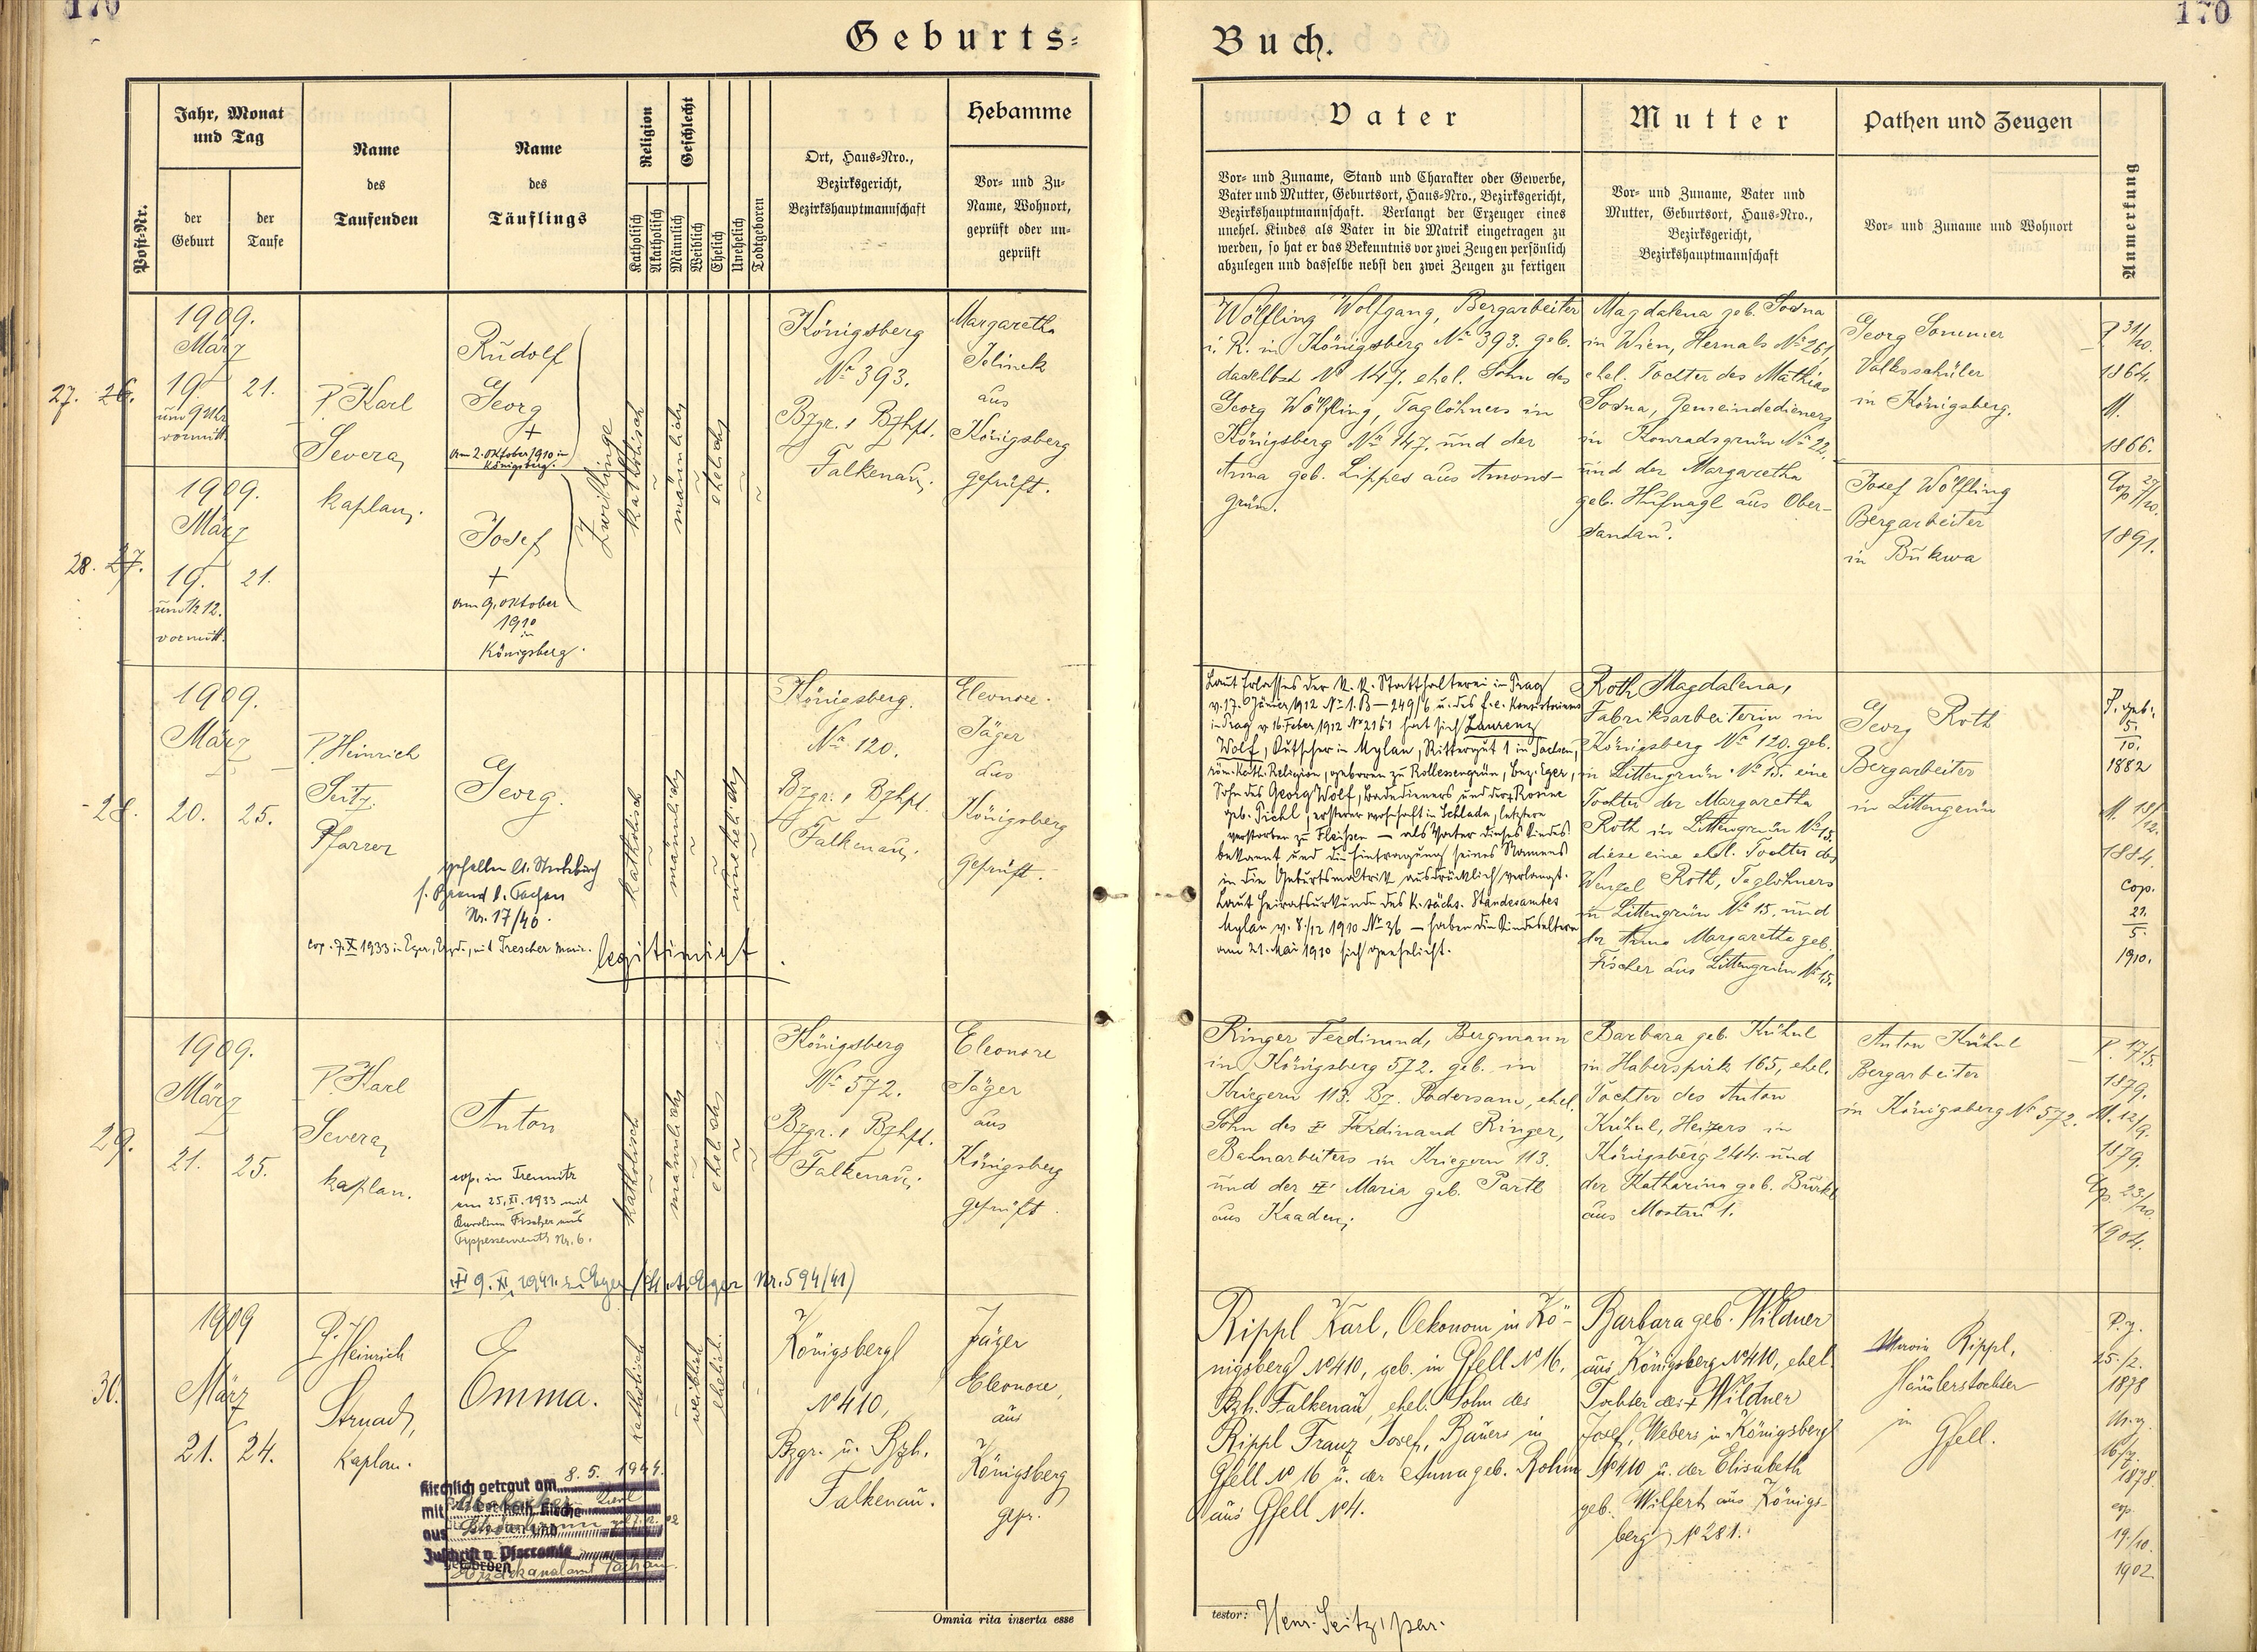 170
170
Geburts-
Buch.
Post-Nr.
Jahr, Monat
und Tag
der
Geburt
der
Taufe
Name
des
Taufenden
Name
des
Täuflings
Religion
Katholisch
Akatholisch
Geschlecht
Männlich
Weiblich
Ehelich
Unehelich
Todtgeboren
Ort, Haus-Nro.,
Bezirksgericht,
Bezirkshauptmannschaft
Hebamme
Vor- und Zu-
Name, Wohnort,
geprüft oder un-
geprüft
Vater
Vor- und Zuname, Stand und Charakter oder Gewerbe,
Vater und Mutter, Geburtsort, Haus-Nro., Bezirksgericht,
Bezirkshauptmannschaft. Verlangt der Erzeuger eines
unehel. Kindes als Vater in die Matrik eingetragen zu
werden, so hat er das Bekenntnis vor zwei Zeugen persönlich
abzulegen und dasselbe nebst den zwei Zeugen zu fertigen
Mutter
Vor- und Zuname, Vater und
Mutter, Geburtsort, Haus-Nro.,
Bezirksgericht,
Bezirkshauptmannschaft
Pathen und Zeugen
Vor- und Zuname und Wohnort
Anmerkung
27. 26.
1909.
März
19.
um 9 Uhr
vormitt.
21.
P. Karl
Severa,
Kaplan.
Rudolf
Georg
+
am 2. Oktober 1910 in
Königsberg.
Zwillinge
katholisch
männlich
ehelich
Königsberg
No 393.
Bzgr. u. Bzhpt.
Falkenau.
Margaretha
Jelinek
aus
Königsberg
geprüft.
28. 27.
1909.
März
19.
um ½ 12.
vormitt.
21.
Josef
+
am 9. Oktober
1910
in
Königsberg.
Wölfling Wolfgang, Bergarbeiter
i. R. in Königsberg No 393. geb.
daselbst No 147. ehel. Sohn des
Georg Wölfling, Taglöhners in
Königsberg No 147. und der
Anna geb. Lippes aus Amons-
grün.
Magdalena geb. Sosna
in Wien, Hernals No 261,
ehel. Tochter des Mathias
Sosna, Gemeindedieners
in Konradsgrün No 22.
und der Margaretha
geb. Hufnagl aus Ober-
sandau.
Georg Sommer
Volksschüler
in Königsberg.
Josef Wölfling
Bergarbeiter
in Bukwa
P 31/10.
1864.
M.
1866.
Cop 27/10.
1891.
28.
1909.
März
20.
25.
P. Heinrich
Seitz,
Pfarrer
Georg.
gefallen lt. Sterbebuch
Nr. 17/40.
cop. 7. X 1933 in Eger, mit Trescher Marie.
legitimiert
katholisch
männlich
unehelich
Königsberg.
No 120.
Bzgr. u. Bzhpt.
Falkenau.
Eleonore
Jäger
aus
Königsberg
geprüft.
Laut Erlasses der k. k. Statthalterei in Prag
v. 17. Jänner 1912 No 1. B – 249/6 u. des f. e. Konsistoriums
in Prag v. 16. Feber 1912 No 2161 hat sich Laurenz
Wolf, Kutscher in Mylau, Rittergut 1 in Sachsen,
röm. kath. Religion, geboren zu Rollessengrün, Bez. Eger,
Sohn des Georg Wolf, Badedieners und der + Rosine
geb. Pichl, ersterer wohnhaft in Schlada, letztere
verstorben zu Fleißen – als Vater dieses Kindes
bekannt und die Eintragung seines Namens
in die Geburtsmatrik ausdrücklich verlangt.
Laut Heiratsurkunde des k. sächs. Standesamtes
Mylau v. 8./12 1910 No 36 – haben die Kindeseltern
am 21. Mai 1910 sich geehelicht.
Roth Magdalena,
Fabriksarbeiterin in
Königsberg No 120. geb.
in Littengrün No 15. eine
Tochter der Margaretha
Roth in Littengrün No 15.
diese eine ehel. Tochter des
Wenzel Roth, Taglöhners
in Littengrün No 15. und
der Anna Margaretha geb.
Fischer aus Littengrün No 15.
Georg Roth
Bergarbeiter
in Littengrün
P. geb.
5.
10.
1882
M. 18/12.
1884.
cop.
21.
5.
1910.
29.
1909.
März
21.
25.
P. Karl
Severa,
Kaplan.
Anton
cop. in Tremnitz
am 25. XI. 1933 mit
Karolina Fischer aus
Nr. 6.
+ 9. XI. 1941 in Eger (St. A. Eger Nr. 594/41)
katholisch
männlich
ehelich
Königsberg
No 572.
Bzgr. u. Bzhpt.
Falkenau.
Eleonore
Jäger
aus
Königsberg
geprüft.
Ringer Ferdinand, Bergmann
in Königsberg 572. geb. in
Kriegern 113. Bz. Podersam, ehel.
Sohn des + Ferdinand Ringer,
Bahnarbeiters in Kriegern 113.
und der + Maria geb. Partl
aus Kaaden.
Barbara geb. Krühul
in Haberspirk 165, ehel.
Tochter des Anton
Krühul, Heizers in
Königsberg 244. und
der Katharina geb. Bürkl
aus Mostau 1.
Anton Krühul
Bergarbeiter
in Königsberg No 572.
P. 17/5.
1879.
M. 12/9.
1879.
Cop. 23/10.
1904.
30.
1909
März
21.
24.
P. Heinrich
Strnad,
Kaplan.
Emma.
Kirchlich getraut am 8. 5. 1944.
mit
aus
Zuschrift v. Pfarramte
katholisch
weiblich
ehelich.
Königsberg
No 410,
Bzgr. u. Bzh.
Falkenau.
Jäger
Eleonore,
aus
Königsberg
gepr.
Rippl Karl, Oekonom in Kö-
nigsberg No 410, geb. in Gfell No 16,
Bzh. Falkenau, ehel. Sohn des
Rippl Franz Josef, Bauers in
Gfell No 16 u. der Anna geb. Rohm
aus Gfell No 4.
Barbara geb. Wildner
aus Königsberg No 410, ehel.
Tochter des + Wildner
Josef, Webers in Königsberg
No 410 u. der Elisabeth
geb. Wilfert aus Königs-
berg No 281.
Maria Rippl,
Häuslerstochter
in
Gfell.
P. g.
25./2.
1878
M. g.
16/7.
1878.
cop
19./10.
1902
Omnia rita inserta esse
testor: Henr. Seitz, par.